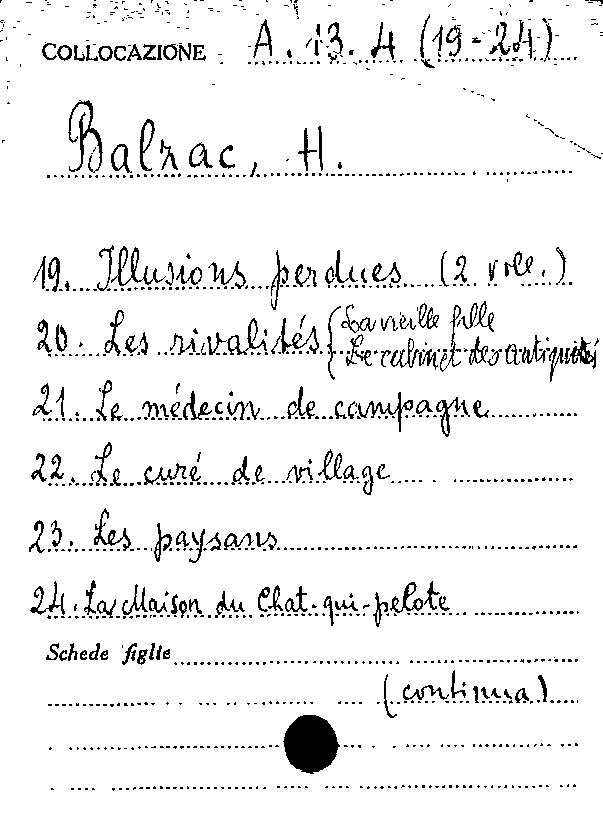 COLLOCAZIONE A. 13. 4 (19-24)
Balzac, H.
19. Illusions perdues (2 voll.)
20. Les rivalités { La vieille fille
Le cabinet des antiquités
21. Le médecin de campagne
22. Le curé de village
23. Les paysans
24. La Maison du Chat-qui-pelote
Schede figlie
(continua)